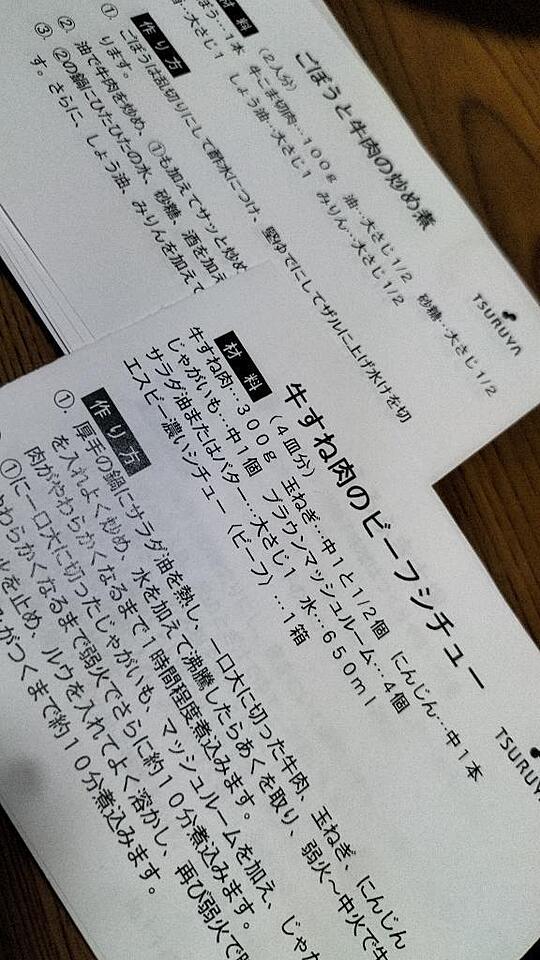 ごぼうと牛肉の炒め煮
TSURUYA
材料
(2人分)
ぼう…1本
牛こま切肉…100g 油…大さじ1/2 砂糖…大さじ1/2
酒…大さじ1 しょう油…大さじ1 みりん…大さじ1/2
作り方
①. ごぼうは乱切りにして酢水につけ、堅ゆでにしてザルに上げ水けを切
ります。
②. 油で牛肉を炒め、①も加えてサッと炒め
③ ②の鍋にひたひたの水、砂糖、酒を加え
す。さらに、しょう油、みりんを加えて
牛すね肉のビーフシチュー
TSURUYA
材料
(4皿分)
牛すね肉…300g 玉ねぎ…中1と1/2個 にんじん…中1本
じゃがいも…中1個 ブラウンマッシュルーム…4個
サラダ油またはバター…大さじ1 水…650ml
エスビー濃いシチュー〈ビーフ〉…1箱
作り方
①. 厚手の鍋にサラダ油を熱し、一口大に切った牛肉、玉ねぎ、にんじん
を入れよく炒め、水を加えて沸騰したらあくを取り、弱火~中火で牛
肉がやわらかくなるまで1時間程度煮込みます。
①に一口大に切ったじゃがいも、マッシュルームを加え、じゃが
やわらかくなるまで弱火でさらに約10分煮込みます。
を止め、ルウを入れてよく溶かし、再び弱火で
がつくまで約10分煮込みます。